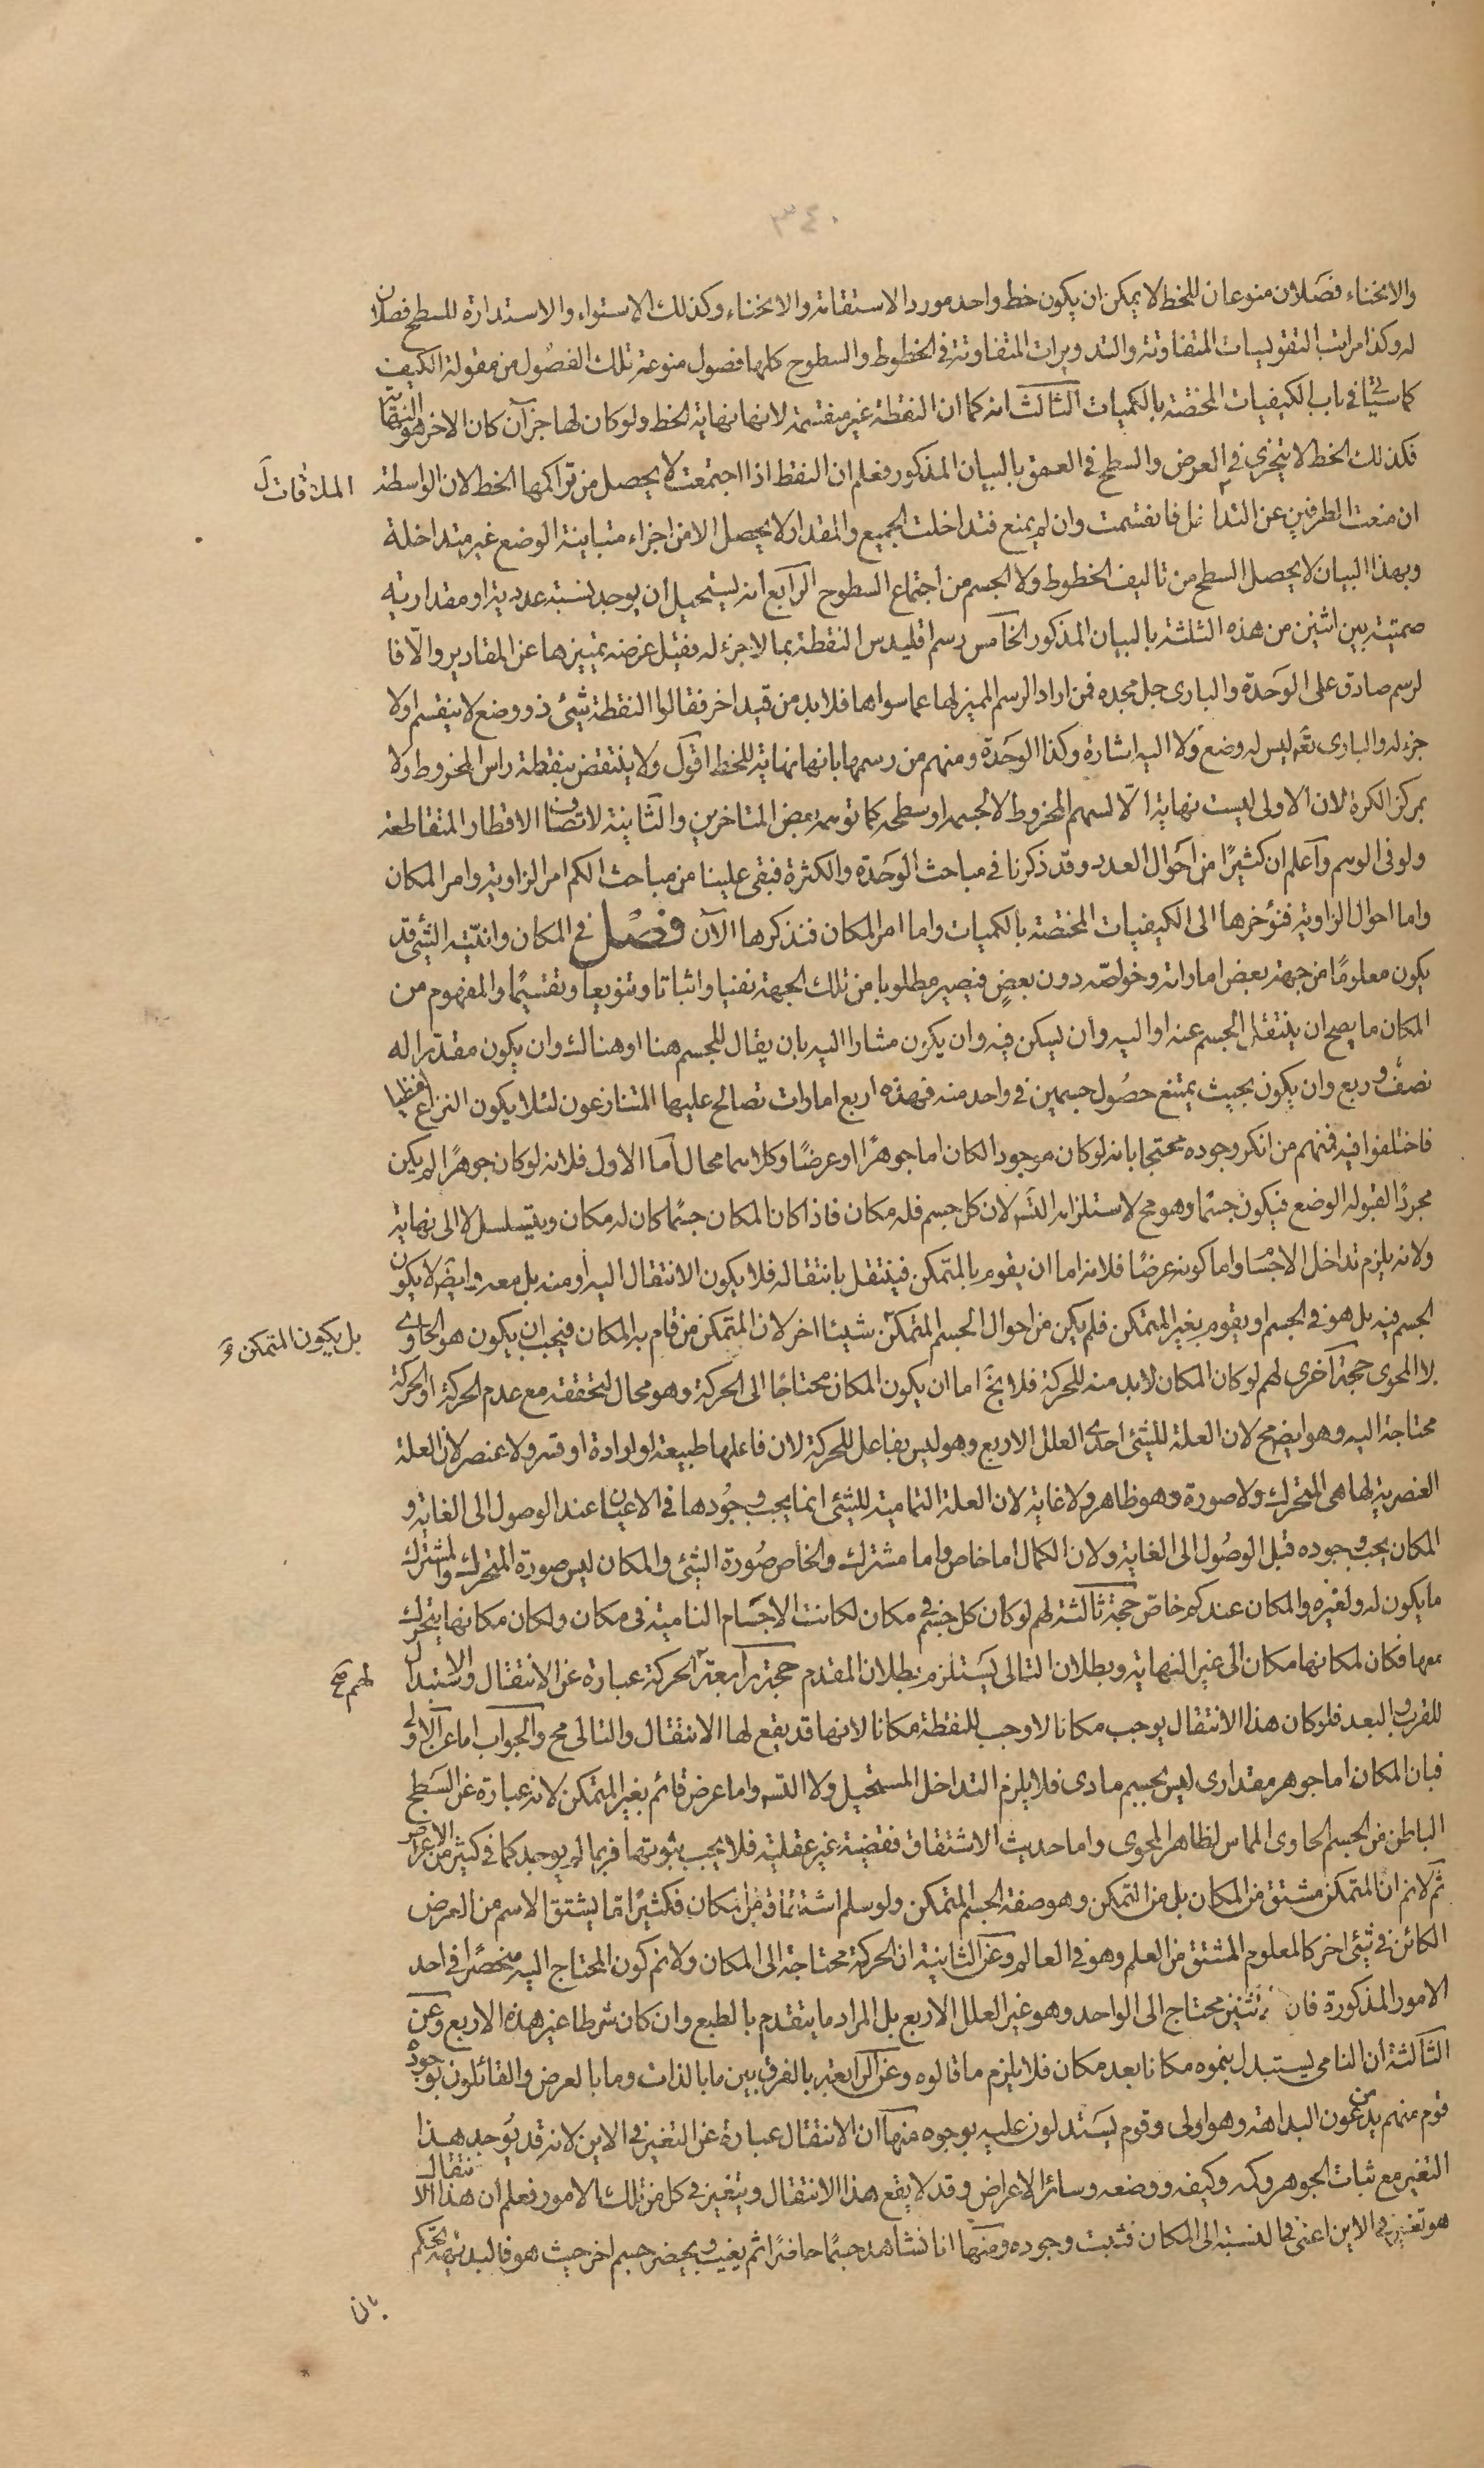 ٣٤٠
والانحناء فصلان منوعان للخط لا يمكن ان يكون خط واحد مورد الاستقامة والانحناء وكذلك الاستواء والاستدارة للسطح فصلان
له وكذا مراتب التقويسات المتفاوتة والتدويرات المتفاوتة فى الخطوط والسطوح كلها فصول منوعة تلك الفصول من مقولة الكيف
كما سيأتى فى باب الكيفيات المختصة بالكميات الثالث انه كما ان النقطة غير منقسمة لانها نهاية الخط ولو كان لها جزآن كان الاخر هو النهاية
فكذلك الخط لا يتجزى فى العرض والسطح فى العمق بالبيان المذكور فعلم ان النقط اذا اجتمعت لا يحصل من تراكمها الخط لان الواسطة
الملاقات
ان منعت الطرفين عن التداخل فانقسمت وان لم يمنع فتداخلت الجميع والمقدار لا يحصل الا من اجزاء متباينة الوضع غير متداخلة
وبهذا البيان لا يحصل السطح من تاليف الخطوط ولا الجسم من اجتماع السطوح الرابع انه يستحيل ان يوجد نسبة عددية او مقدارية
صمتية بين اثنين من هذه الثلثة بالبيان المذكور الخامس رسم اقليدس النقطة بما لا جزء له فقيل غرضه تمييزها عن المقادير والّا فا
لرسم صادق على الوحدة والبارى جل مجده فمن اراد الرسم المميز لها عما سواها فلابد من قيد اخر فقالوا النقطة شئ ذو وضع لا ينقسم او لا
جزء له والبارى تعـ ليس له وضع ولا اليه اشارة وكذا الوحدة ومنهم من رسمها بانها نهاية للخط اقول ولا ينتقض بنقطة راس المخروط ولا
بمركز الكرة لان الاولى ليست نهاية الّا لسهم المخروط لا لجسمه او سطحه كما توهمه بعض المتاخرين والثانية لاتصاف الاقطار المتقاطعة
ولو فى الوهم واعلم ان كثيرًا من احوال العدد وقد ذكرنا فى مباحث الوحدة والكثرة فبقى علينا من مباحث الكم امر الزاوية وامر المكان
واما احوال الزاوية فنؤخرها الى الكيفيات المختصة بالكميات واما امر المكان فنذكرها الآن فصل فى المكان وانيّته الشئ قد
يكون معلومًا من جهة بعض اماراته وخواصّه دون بعضٍ فيصير مطلوبا من تلك الجهة نفيا واثباتا وتنويعا وتقسيمًا والمفهوم من
المكان ما يصح ان ينتقل الجسم عنه او اليه وان يسكن فيه وان يكون مشارا اليه بان يقال للجسم هنا او هنالك وان يكون مقدّرا له
نصف وربع وان يكون بحيث يمتنع حصول جسمين فى واحد منه فهذه اربع امارات تصالح عليها المتنازعون لئلا يكون النزاع لفظيا
فاختلفوا فيه فمنهم من انكر وجوده محتجا بانه لو كان موجودا لكان اما جوهرًا او عرضًا وكلاهما محال اما الاول فلانه لو كان جوهرًا لم يكن
مجردًا لقبوله الوضع فيكون جسمًا وهو مح لاستلزامه التسـ لان كل جسم فله مكان فاذا كان المكان جسمًا كان له مكان ويتسلسل لا الى نهاية
ولانه يلزم تداخل الاجسام واما كونه عرضًا فلانه اما ان يقوم بالمتمكن فينتقل بانتقاله فلا يكون الانتقال اليه او منه بل معه وايضـ لا يكون
الجسم فيه بل هو فى الجسم او يقوم بغير المتمكن فلم يكن من احوال الجسم المتمكن شيئا اخر لان المتمكن من قام به المكان فيجب ان يكون هو الحاوى
بل يكون المتمكن
لا المحوى حجة اخرى لهم لو كان المكان لابد منه للحركة فلا يخـ اما ان يكون المكان محتاجًا الى الحركة وهو محال لتحققه مع عدم الحركة او الحركة
محتاجة اليه وهو ايضـ مح لان العلة للشئ احدى العلل الاربع وهو ليس بفاعل للحركة لان فاعلها طبيعة او ارادة او قسر ولا عنصر لان العلة
العنصرية لها هى المتحرك ولا صورة وهو ظاهر ولا غاية لان العلة التمامية للشئ انما يجب وجودها فى الاعيان عند الوصول الى الغاية و
المكان يجب وجوده قبل الوصول الى الغاية ولان الكمال اما خاص واما مشترك والخاص صورة الشئ والمكان ليس صورة المتحرك والمشترك
ما يكون له ولغيره والمكان عندكم خاصّ حجة ثالثة لهم لو كان كل جسم فى مكان لكانت الاجسام النامية فى مكان ولكان مكانها يتحرك
معها فكان لمكانها مكان الى غير النهاية وبطلان التالى يستلزم بطلان المقدم حجة رابعة الحركة عبارة عن الانتقال والاستبدال
لهم صح
للقرب والبعد فلو كان هذا الانتقال يوجب مكانا لاوجب للنقطة مكانا لانها قد يقع لها الانتقال والتالى مح والجواب اما عن الاولى
فبان المكان اما جوهر مقدارى ليس بجسم مادى فلا يلزم التداخل المستحيل ولا التسـ واما عرض قائم بغير المتمكن لانه عبارة عن السطح
الباطن من الجسم الحاوى المماس لظاهر المحوى واما حديث الاشتقاق فقضية غير عقلية فلا يجب ثبوتها فربما لم يوجد كما فى كثير من الاعراض
ثم لانم ان المتمكن مشتق من المكان بل من التمكن وهو صفة الجسم المتمكن ولو سلم اشتقاقه من المكان فكثيرًا ما يشتق الاسم من العرض
الكائن فى شئ اخر كالمعلوم المشتق من العلم وهو فى العالم وعن الثانية ان الحركة محتاجة الى المكان ولا نم كون المحتاج اليه منحصرًا فى احد
الامور المذكورة فان الاثنين محتاج الى الواحد وهو غير العلل الاربع بل المراد ما يتقدم بالطبع وان كان شرطا غير هذه الاربع وعن
الثالثة ان النامى يستبدل بنموه مكانا بعد مكان فلا يلزم ما قالوه وعن الرابعة بالفرق بين ما بالذات وما بالعرض والقائلون بوجوده
قوم منهم يدعون البداهة وهو اولى وقوم يستدلون عليه بوجوه منها ان الانتقال عبارة عن التغير فى الاين لانه قد يوجد هذا
التغير مع ثبات الجوهر وكمه وكيفه ووضعه وسائر الاعراض وقد لا يقع هذا الانتقال ويتغير فى كل من تلك الامور فعلم ان هذا الانتقال
هو تغير فى الاين اعنى فى النسبة الى المكان فثبت وجوده ومنها انا نشاهد جسمًا حاضرًا ثم يغيب ويحضر جسم اخر حيث هو فالبديهة تحكم
بان